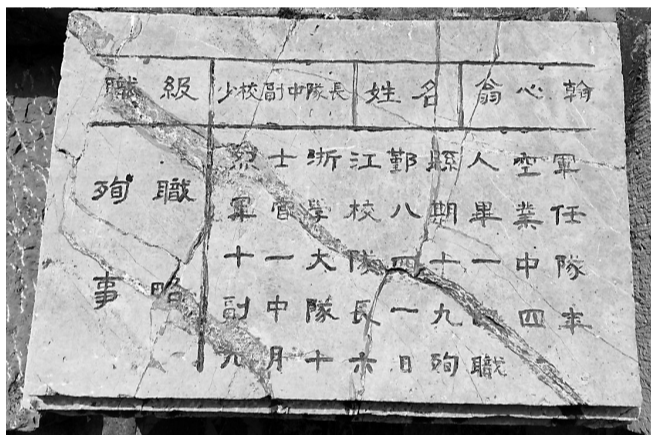 職級 少校副中隊長 姓名 翁心翰
殉職
事略
烈士浙江鄞縣人空軍
軍官學校八期畢業任
十一大隊四十一中隊
副中隊長一九四四年
九月十六日殉職